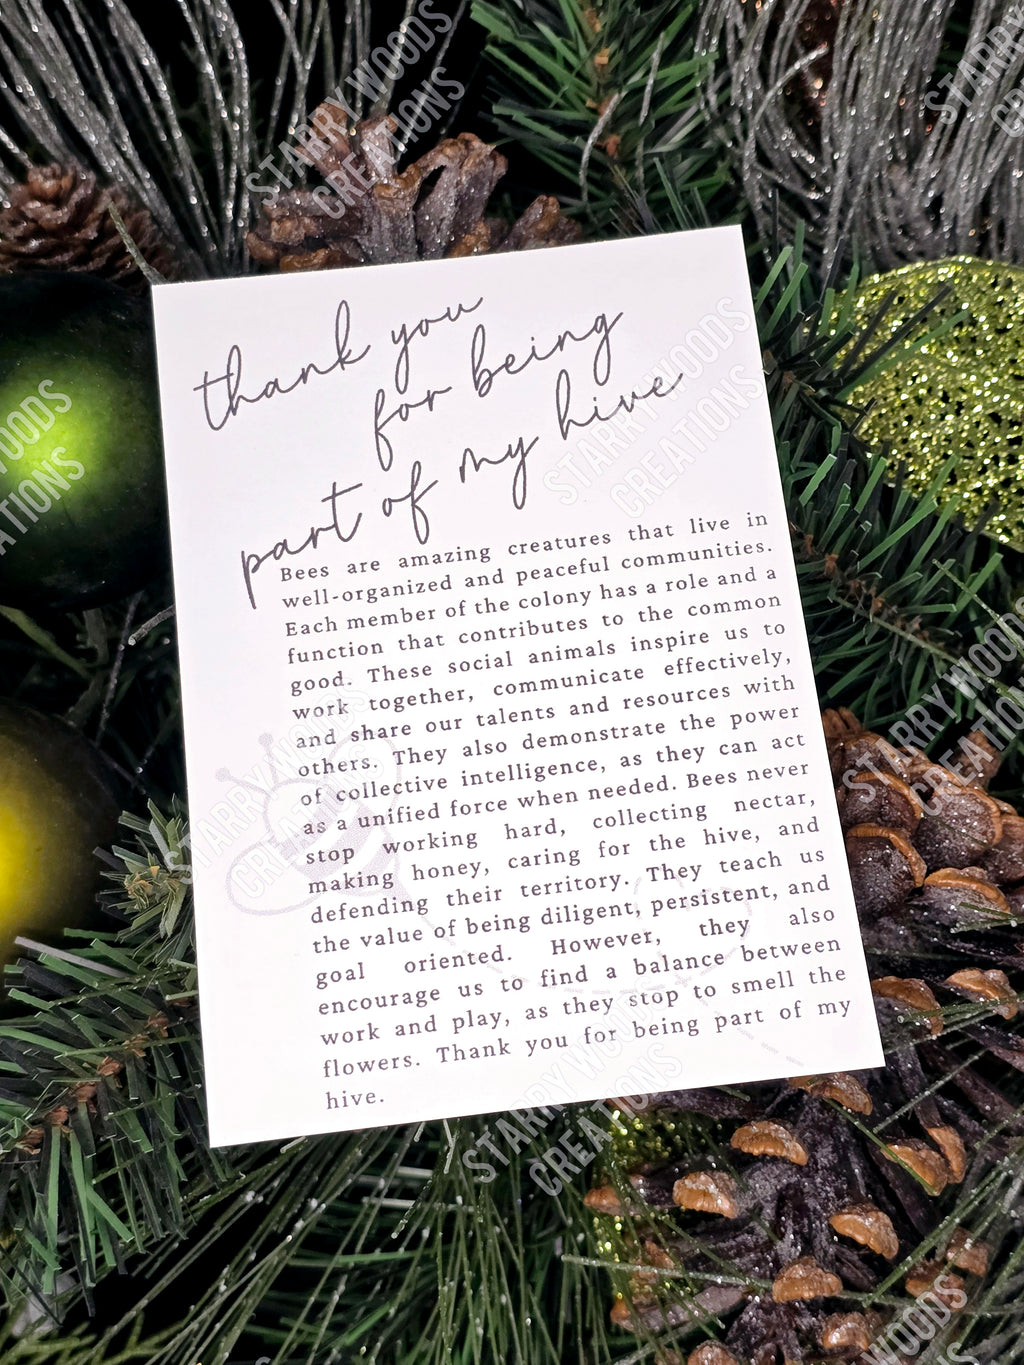 thank you
for being
part of my hive
Bees are amazing creatures that live in
well-organized and peaceful communities.
Each member of the colony has a role and a
function that contributes to the common
good. These social animals inspire us to
work together, communicate effectively,
and share our talents and resources with
others. They also demonstrate the power
of collective intelligence, as they can act
as a unified force when needed. Bees never
stop working hard, collecting nectar,
making honey, caring for the hive, and
defending their territory. They teach us
the value of being diligent, persistent, and
goal oriented. However, they also
encourage us to find a balance between
work and play, as they stop to smell the
flowers. Thank you for being part of my
hive.
STARRY WOODS
CREATIONS
STARRY WOODS
CREATIONS
STARRY WOODS
CREATIONS
STARRY WOODS
CREATIONS
STARRY WOODS
CREATIONS
STARRY WOODS
CREATIONS